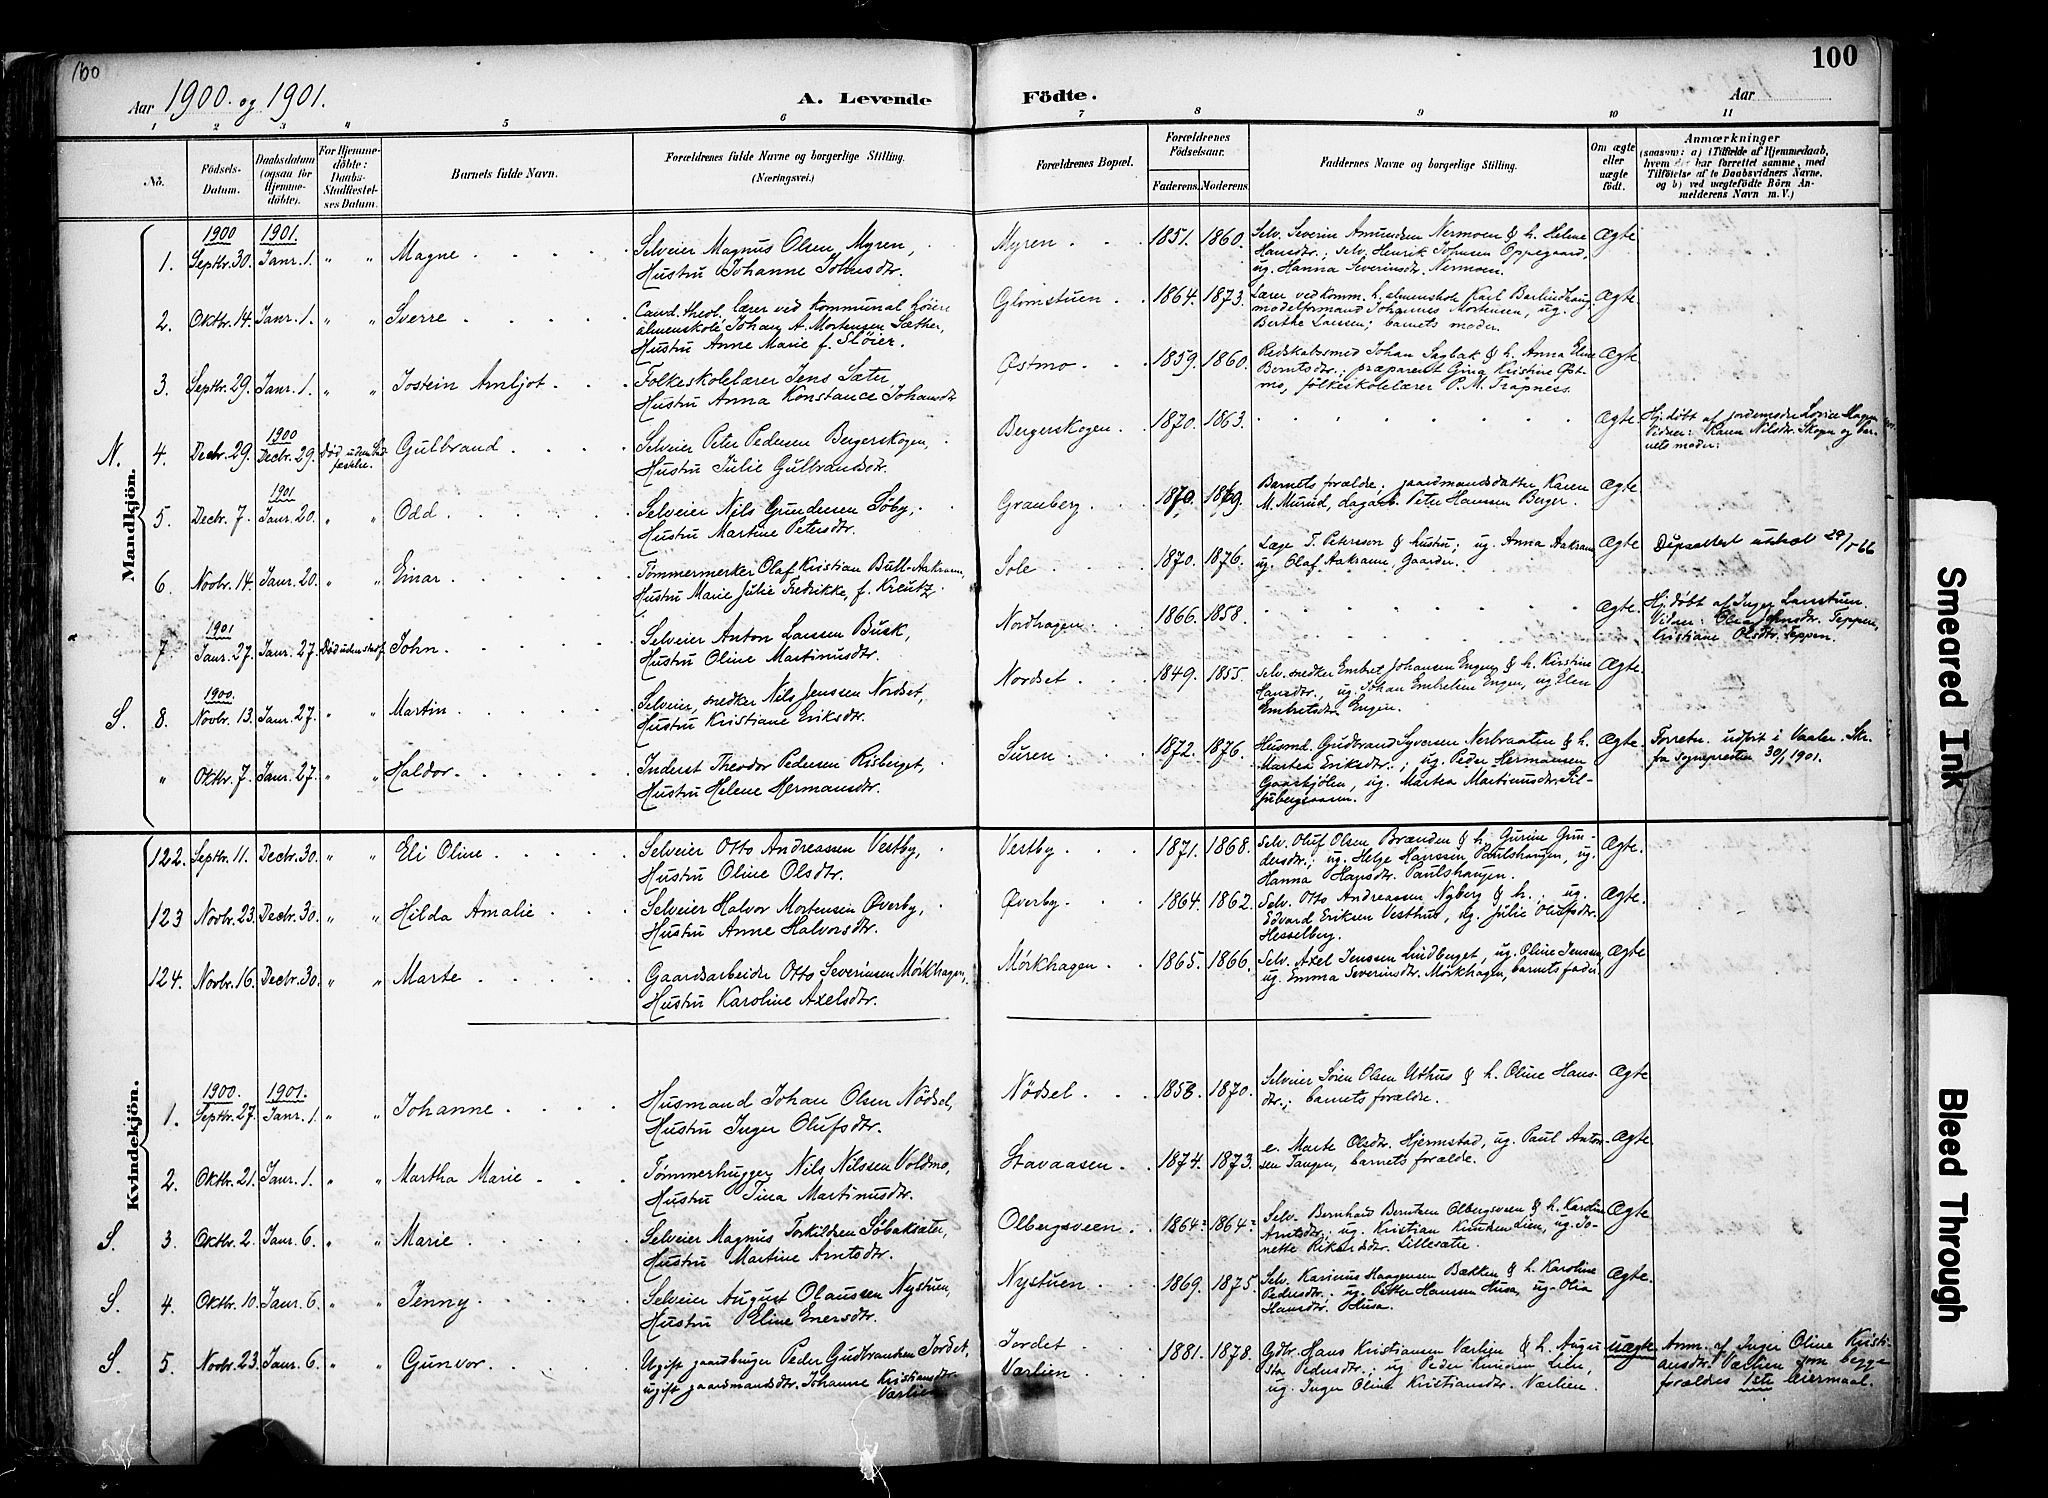 100
100
Aar 1900. og 1901.
A. Levende
Födte.
Aar
1 2 3 4 5 6 7 8 9 10 11
No.
Födsels-Datum.
Daabsdatum (ogsaa for Hjemme-döbte).
For Hjemme-döbte: Daabs-Stadfæstel-ses Datum.
Barnets fulde Navn.
Forældrenes fulde Navne og borgerlige Stilling. (Næringsvei.)
Forældrenes Bopæl.
Forældrenes Födselsaar.
Faderens. Moderens.
Faddernes Navne og borgerlige Stilling.
Om ægte eller uægte födt.
Anmærkninger
(saasom: a) i Tilfælde af Hjemmedaab, hvem der har forrettet samme, med Tilföielse af to Daabsvidners Navne, og b) ved uægtefödte Börn An-melderens Navn m. V.)
Mandkjön.
1900 1901.
1. Septbr. 30. Janr. 1. " " Magne
Selveier Magnus Olsen Myren,
Hustru Johanne Johnsdtr.
Myren 1851. 1860.
Selv. Severin Amundsen Nermoen & h. Helene
Hansdtr.; selv. Henrik Johnsen Oppegaard,
ug. Hanna Severinsdtr. Nermoen.
Ægte
2. Oktbr. 14. Janr. 1. " " Sverre
Cand. theol., lærer ved kommunal höiere
almenskole Johan A. Mortensen Sæther,
Hustru Anne Marie f. Slöier.
Glomstuen 1864. 1873.
Lærer ved komm. h. almenskole Karl
modelformand Johannes Mortensen, ug.
Berthe Larsen; barnets moder.
Ægte.
3. Septbr. 29. Janr. 1. " " Jostein Arnljot
Folkeskolelærer Jens Sæter,
Hustru Anna Konstance Johansdtr
Østmo 1859. 1860.
Redskabssmed Johan Sagbak & h. Anna Eline
Berntsdtr.; præparent Gina Kristine Øst-
mo, folkeskolelærer P. M. Trapness.
Ægte
N. 4. Decbr. 29. 1900 Decbr. 29. Død uden Stad-fæstelse. Gulbrand
Selveier Peter Pedersen Bergerskogen,
Hustru Julie Gulbrandsdtr.
Bergerskogen 1870. 1863.
Ægte.
Hj. døbt af jordemoder Lovise
Vidner: Karen Nilsdtr. Skogn og bar-
nets moder.
5. Decbr. 7. 1901 Janr. 20. " " Odd
Selveier Nils Gundersen Søby,
Hustru Martine Petersdtr.
Granberg 1870. 1869.
Barnets forældre; gaardmandsdatter Karen
M. Murud, dagarb. Peter Hanssen Berger.
Ægte
6. Novbr. 14. Janr. 20. " " Einar
Tømmermerker Olaf Kristian Bull-Aakrann,
Hustru Marie Julie Fredrikke, f. Kreutz
Sole 1870. 1876.
Læge T. Petersson & hustru; ug. Anna Aakrann
ug. Olaf Aakrann, Gaarder.
Ægte
7. 1901 Janr. 27. Janr. 27. Død uden stadf. John
Selveier Anton Larsen Busk,
Hustru Oline Martinusdtr.
Nordhagen 1866. 1858.
Ægte.
Hj. døbt af Inger Lanstuen.
Vidner: Teppen,
Kristiane Olsdtr. Teppen.
S. 8. 1900. Novbr. 13. Janr. 27. " " Martin
Selveier, snedker Nils Jenssen Nordset,
Hustru Kristiane Eriksdtr.
Nordset 1849. 1855.
Selv. snedker Embret Johansen Engen & h. Kirstine
Hansdtr., ug. Johan Embretsen Engen, ug. Elen
Embretsdtr. Engen.
Ægte.
" Oktbr. 7. Janr. 27. " " Haldor
Inderst Theodor Pedersen Risberget,
Hustru Helene Hermansdtr.
Suren 1872. 1876.
Husmd. Gudbrand Syversen Nerbraaten & h.
Martea Eriksdtr.; ug. Peder Hermansen
Gaaskjølen, ug. Martea Martinusdtr. Sil-
jubergsaasen.
Ægte.
Forretn. udført i Vaaler.
fra Sognepresten 30/1 1901.
Kvindekjön.
122. Septbr. 11. Decbr. 30. " " Eli Oline
Selveier Otto Andreassen Vestby,
Hustru Oline Olsdtr.
Vestby 1871. 1868.
Selv. Oluf Olsen Brænden & h. Gurine Gun-
dersdtr.; ug. Helge Hanssen Paulshaugen, ug.
Hanna Hansdtr. Paulshaugen.
Ægte.
123 Novbr. 23. Decbr. 30. " " Hilda Amalie
Selveier Halvor Mortensen Øverby,
Hustru Anne Halvorsdtr.
Øverby 1864. 1862.
Selv. Otto Andreassen Nyberg & h.; ug.
Edvard Eriksen Vesthus, ug. Julie Olufsdtr.
Hesselberg.
Ægte.
124. Novbr. 16. Decbr. 30. " " Marte
Gaardsarbeider Otto Severinsen Mörkhagen,
Hustru Karoline Axelsdtr.
Mörkhagen 1865. 1866.
Selv. Axel Jenssen Lindberget, ug. Oline Jensen,
ug. Emma Severinsdtr. Mörkhagen, barnets fader.
Ægte
1900. 1901.
1. Septbr. 27. Janr. 1. " " Johanne
Husmand Johan Olsen Nödsel,
Hustru Inger Olufsdtr.
Nödsel 1858. 1870.
Selveier Sören Olsen Uthus & h. Oline Hans-
dtr.; barnets forældre.
Ægte
2. Oktbr. 21. Janr. 1. " " Martha Marie
Tømmerhugger Nils Nilssen Voldmo,
Hustru Tina Martinusdtr.
Stavaasen 1874. 1873.
e. Marte Olsdtr. Hjermstad, ug. Paul Anton-
sen Tangen, barnets forældre.
Ægte.
S. 3. Oktbr. 2. Janr. 6. " " Marie
Selveier Magnus Torkildsen Søbaksæter,
Hustru Martine Arntsdtr.
Olbergsveen 1864 1864
Selv. Bernhard Berntsen Olbergsveen & h. Karoline
Arntsdtr.; ug. Kristian Knudsen Lien, ug. Jo-
nette Rikardsdtr. Lillesæter.
Ægte
S. 4. Oktbr. 10. Janr. 6. " " Jenny
Selveier August Olaussen Nystuen,
Hustru Eline Enersdtr.
Nystuen 1869. 1875.
Selv. Karinus Haagensen Bækken & h. Karoline
Pedersdtr.; ug. Petter Hansen Husa, ug. Olia
Hansdtr. Husa.
Ægte.
S. 5. Novbr. 23. Janr. 6. " " Gunvor
Ugift gaardbruger Peder Gudbrandsen Jordet,
ugift gaardmandsdtr. Johanne Kristiansdtr.
Værlien
Jordet
Værlien
1881. 1878.
Gdbr. Hans Kristiansen Værlien & h. Augu-
sta Pedersdtr.; ug. Peder Knudsen Lien,
ug. Inger Oline Kristiansdtr. Værlien.
uægte
Anm. af Inger Oline Kristi-
ansdtr. Værlien som begge
forældres 1ste leiermaal.
Smeared Ink
Bleed Through